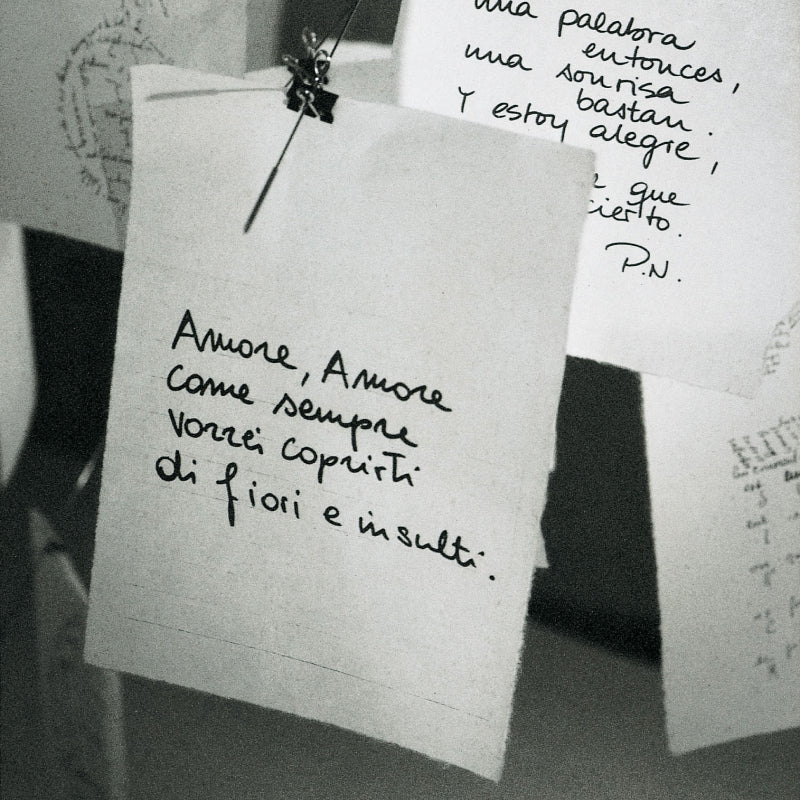 una palabra
entonces,
una sonrisa
bastan.
Y estoy alegre,
que
cierto.
P.N.
Amore, Amore
come sempre
vorrei coprirti
di fiori e insulti.